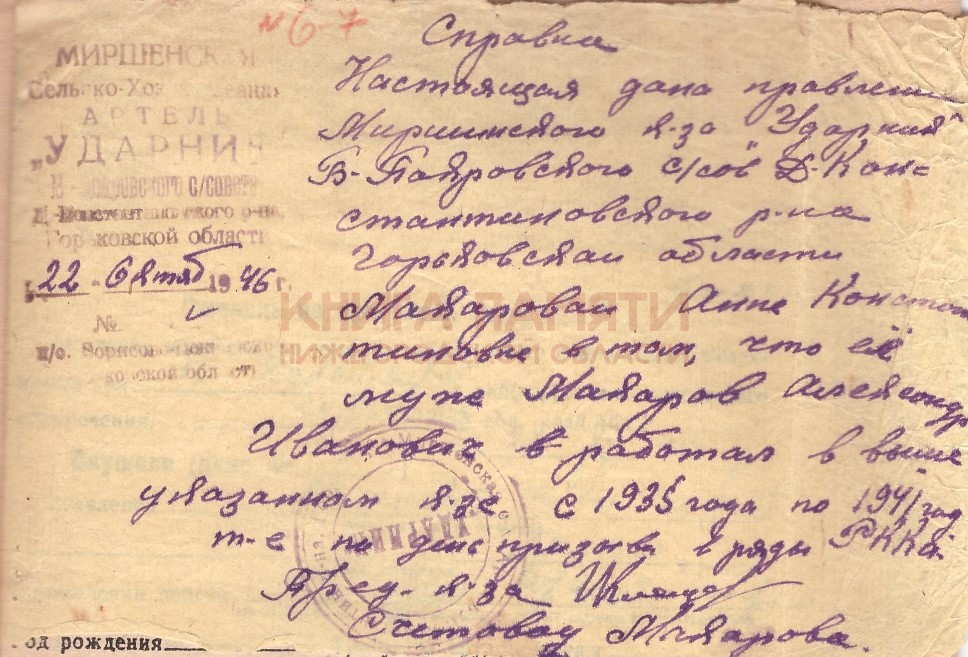 № 6-7
МИРШЕНСКАЯ
АРТЕЛЬ
„УДАРНИК
С/СОВЕТ
Д-Константиновского р-на,
Горьковской области
22 1946 г.
№
п/о. Борисово
Справка
Настоящая дана правлени
Миршенского к-за "Ударник"
Б-Покровского с/сов Д-Кон-
стантиновского р-на
Горьковской области
Макаровой Анне Констан
тиновне в том, что её
муж Макаров Александр
Иванович работал в выше
указанном к-зе с 1935 года по 1941 год
т-е по день призыва в ряды РККА.
Пред. к-за
Счетовод Макарова.
КНИГА ПАМЯТИ
НИЖЕГОРОДСКОЙ ОБЛАСТИ
од рождения